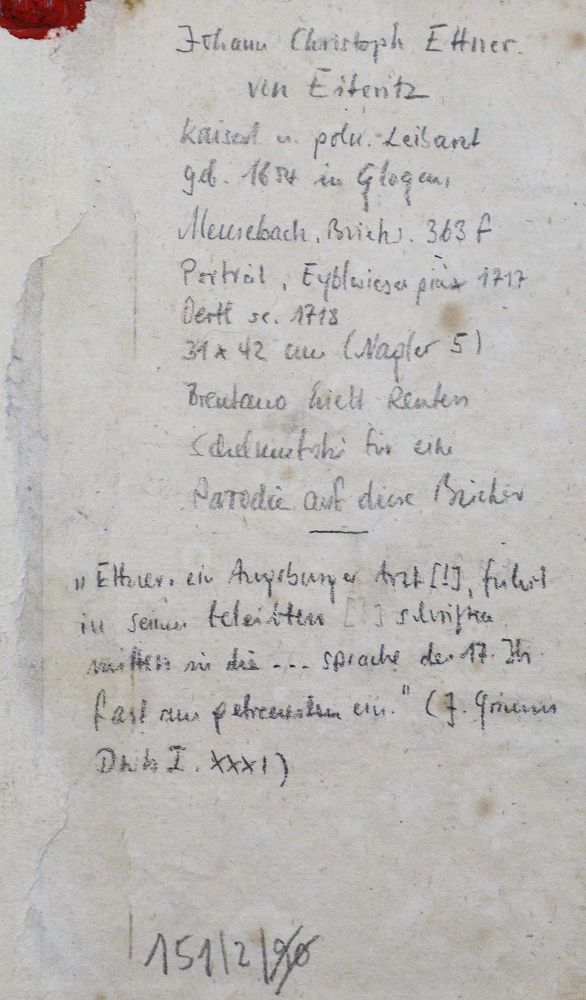 Johann Christoph Ettner.
von Eiteritz
Kaiserl u. poln. Leibarzt
geb. 1654 in Glogau,
Meusebach, Briefw. 363 f
Porträt, Eyblwieser pinx 1717
Oertl sc. 1718
31 x 42 cm (Nagler 5)
Brentano hielt Reuters
Schelmufski für eine
Parodie auf diese Bücher
„Ettner, ein Augsburger Arzt [!], führt
in seinen beleibten [!] schriften
mitten in die ... sprache des 17. Jh.
fast am getreusten ein." (J. Grimm
DWb I. XXXI)
151/2/90